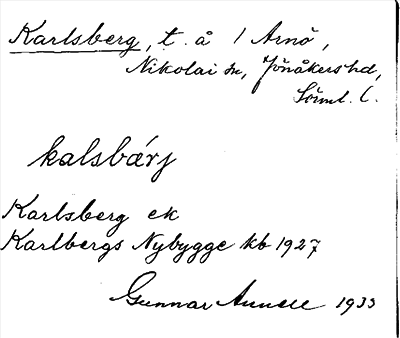 Karlsberg, t. å 1 Arnö,
Nikolai sn, Jönåkers hd,
Sörml. l.
kalsbárj
Karlsberg ek
Karlbergs Nybygge kb 1927
Gunnar 1933